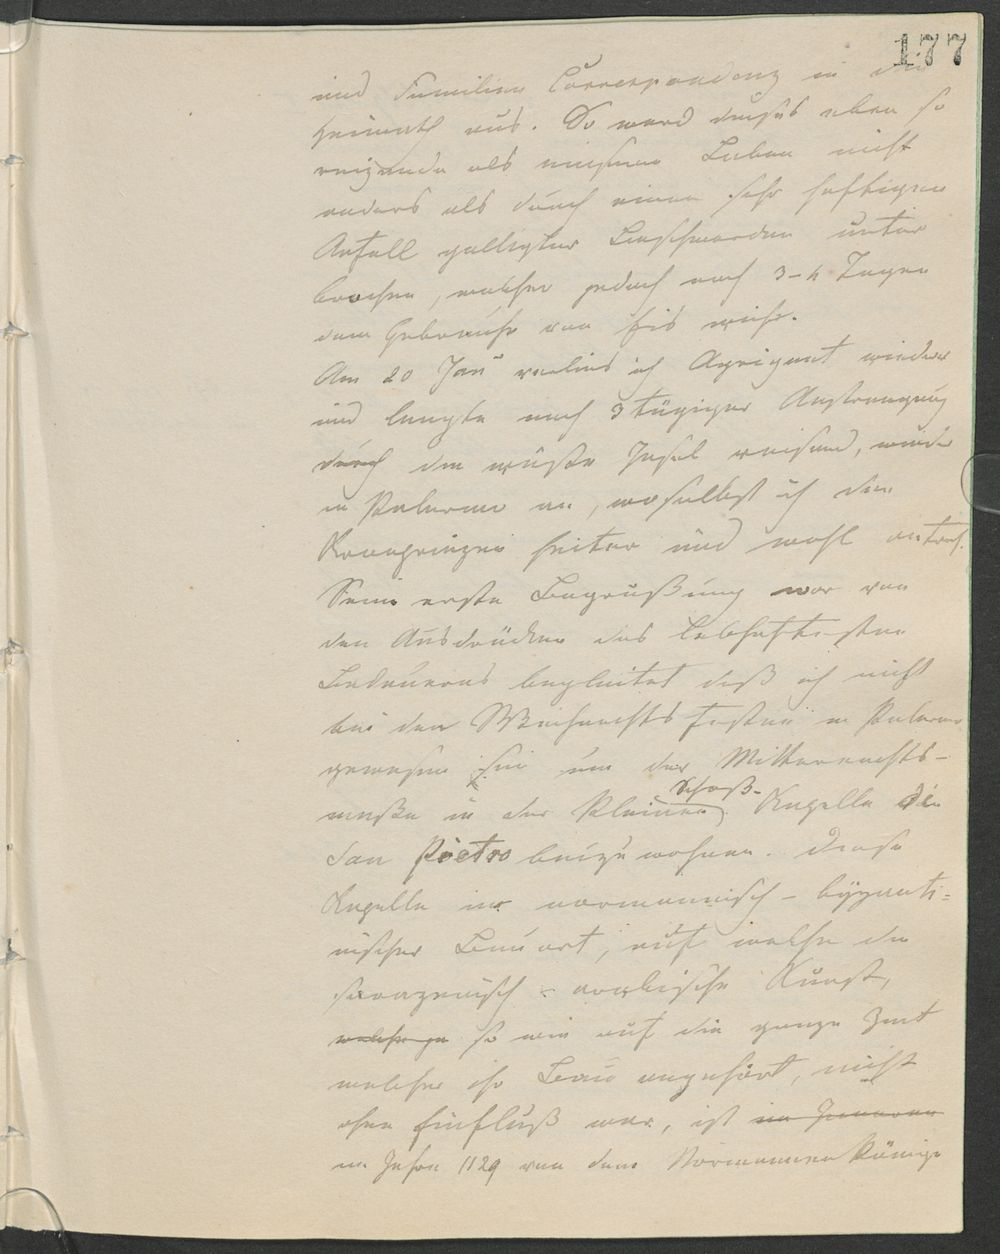 177
und Familien Correspondenz in die
Heimath aus. So ward dieses eben so
reizende als einsame Leben nicht
anders als durch einen sehr heftigen
Anfall galligter Beschwerden unter
brochen, welcher jedoch nach 3-4 Tagen
dem Gebrauche von Eis wich.
Am 20 Jan verließ ich Agrigent wieder
und langte nach 3 tägiger Anstrengung
durch die wüste Insel reisend, wieder
in Palermo an, woselbst ich den
Kronprinzen heiter und wohl antraf.
Seine erste Begrüßung war von
den Ausdrücken des lebhaftesten
Bedauerns begleitet daß ich nicht
bei den Weihnachts festen in Palermo
gewesen sei um der Mitternachts-
messe in der kleinen Schloß- Kapelle di
San Pietro beizuwohnen. Diese
Kapelle in normannisch - byzanti=
nischer Bauart, auf welche die
sarazenisch - arabische Kunst,
so wie auf die ganze Zeit
welcher ihr Bau angehört, nicht
ohne Einfluß war, ist
im Jahre 1129 von dem Normannen Könige